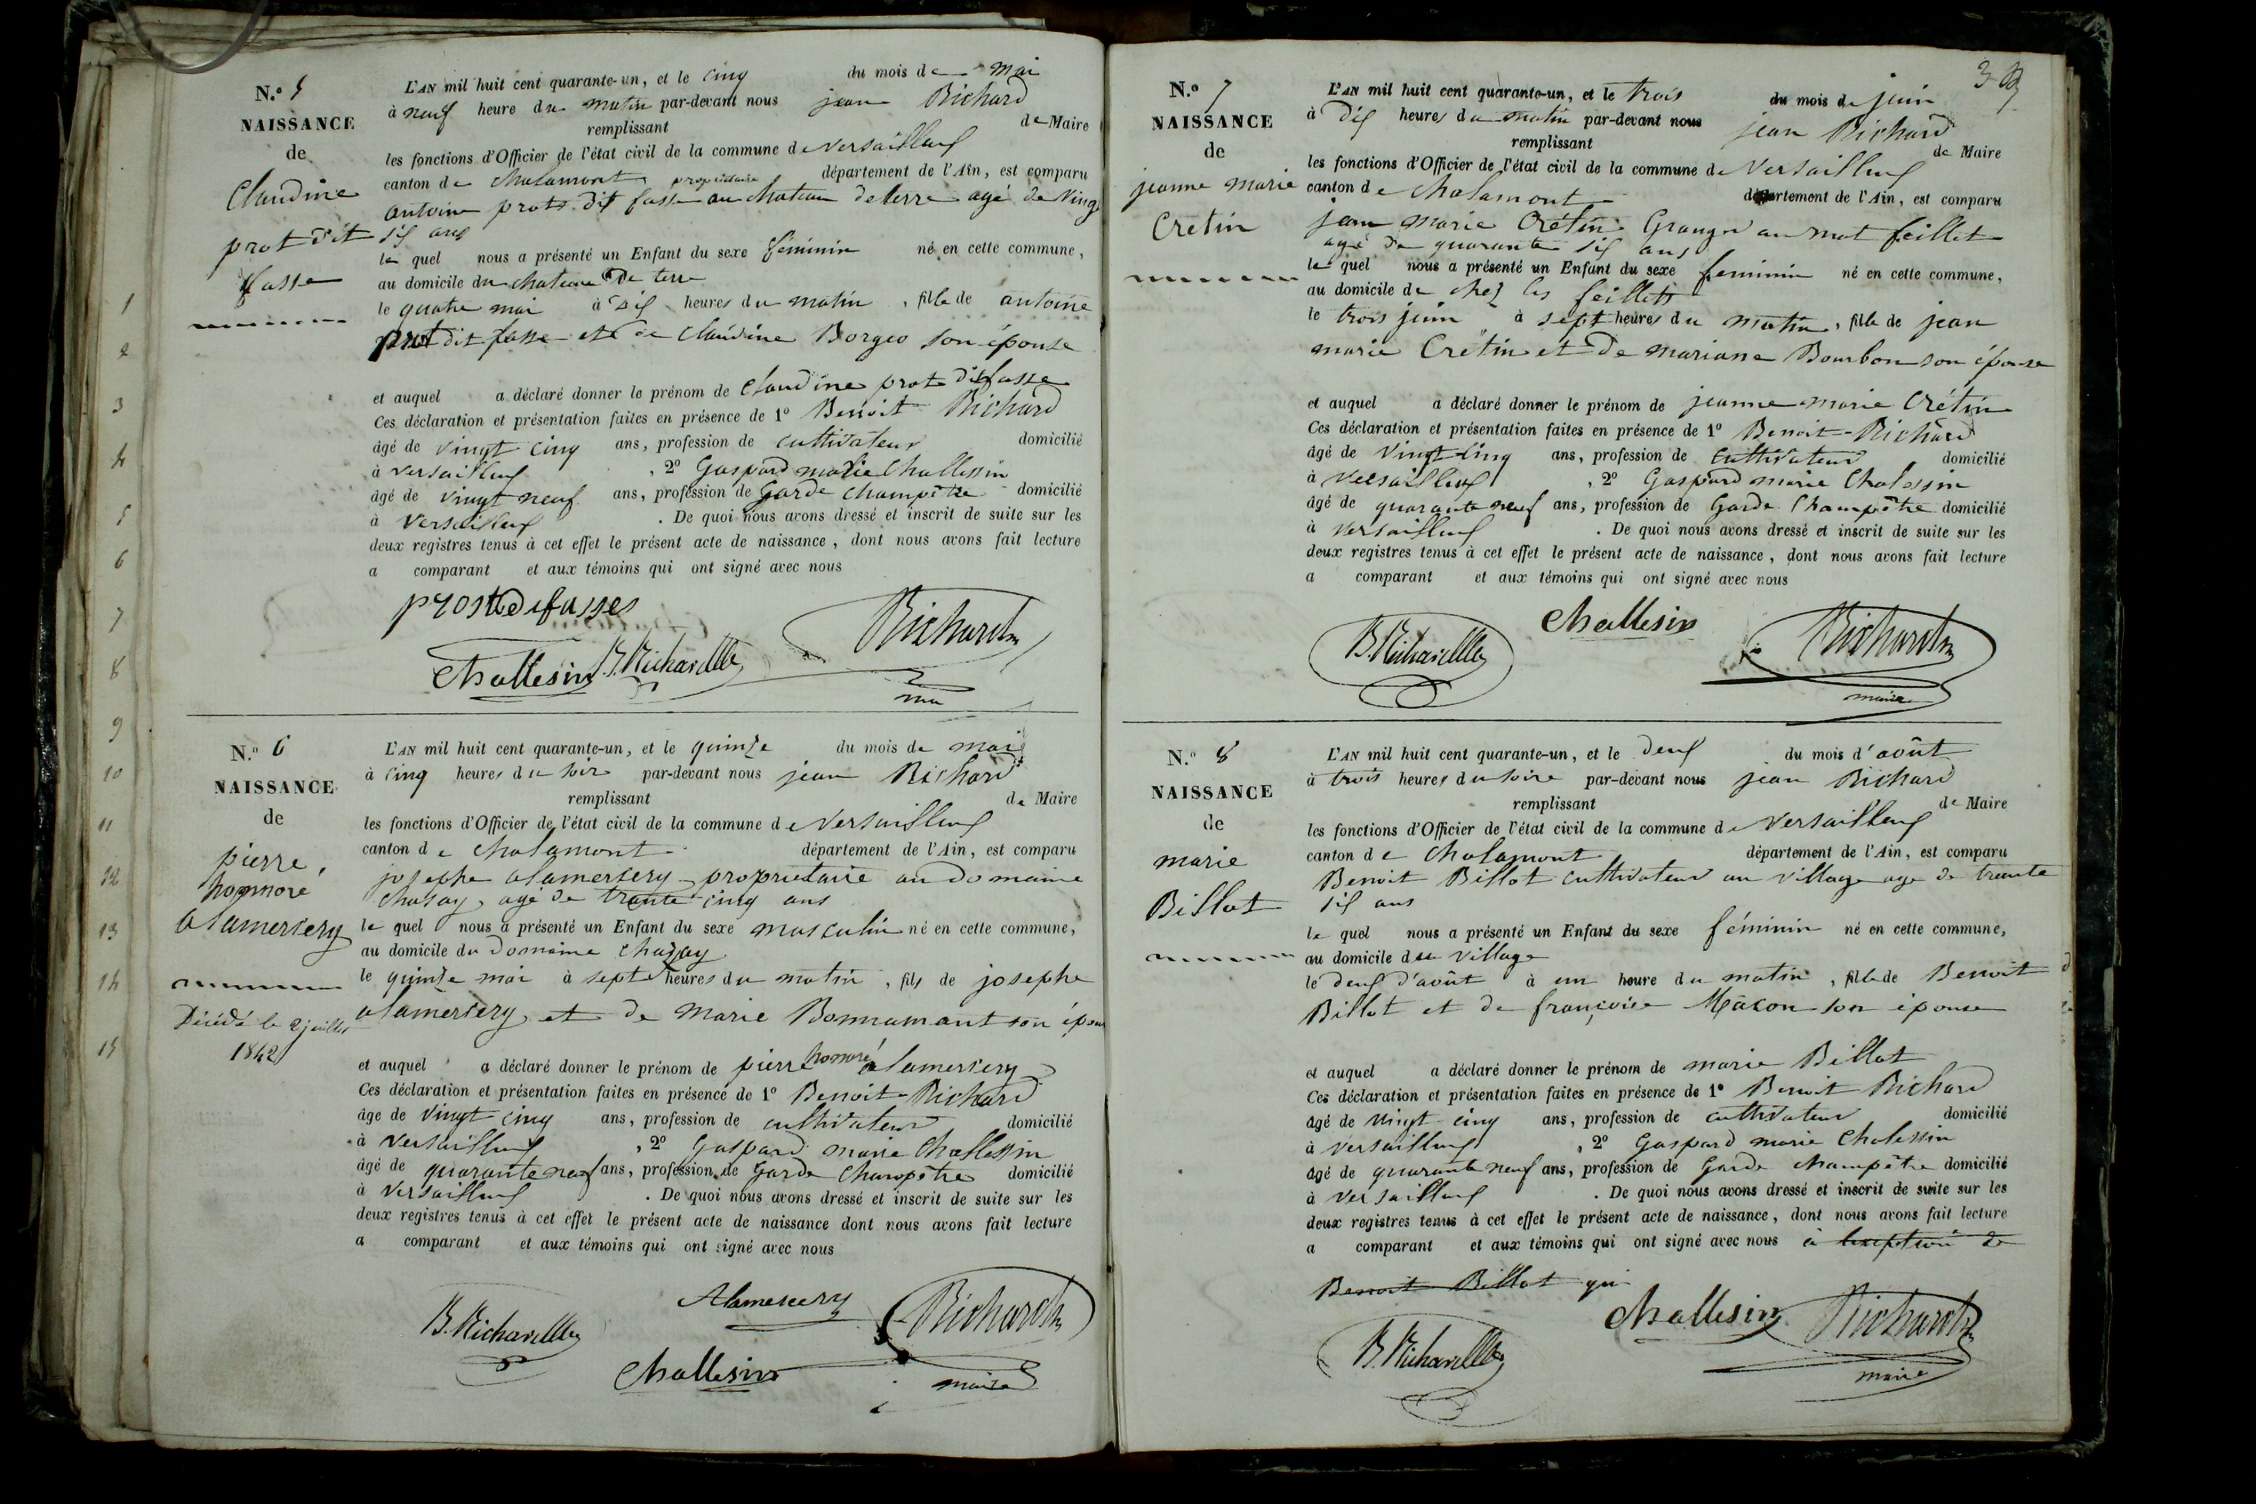 N.° 5
NAISSANCE
de
Claudine
prost dit
fasse
L'AN mil huit cent quarante-un, et le cinq du mois de mai
à neuf heure du matin par-devant nous jean Richard
remplissant de Maire
les fonctions d'Officier de l'état civil de la commune de versailleux
canton de chalamont propriétaire département de l'Ain, est comparu
antoine prost dit fasse au chateau de terre agé de vingt
six ans
le quel nous a présenté un Enfant du sexe féminin né en cette commune,
au domicile du chateau De terre
le quatre mai à six heures du matin, fille de antoine
prost dit fasse et de claudine Borges son épouse
et auquel a déclaré donner le prénom de claudine prost dit fasse
Ces déclaration et présentation faites en présence de 1° Benoit Richard
âgé de vingt cinq ans, profession de cultivateur domicilié
à versailleux, 2° Gaspard marie Challessin
âgé de vingt neuf ans, profession de Garde champêtre domicilié
à versailleux. De quoi nous avons dressé et inscrit de suite sur les
deux registres tenus à cet effet le présent acte de naissance, dont nous avons fait lecture
a comparant et aux témoins qui ont signé avec nous
Challesin B. Richard Richard
N.° 6
NAISSANCE
de
pierre
honnoré
alamercery
Décédé le 2 juillet
1842
L'AN mil huit cent quarante-un, et le quinze du mois de mai
à cinq heures du soir par-devant nous jean Richard
remplissant de Maire
les fonctions d'Officier de l'état civil de la commune de versailleux
canton de chalamont département de l'Ain, est comparu
josephe alamercery propriétaire au domaine
chazay, agé de trente cinq ans
le quel nous a présenté un Enfant du sexe masculin né en cette commune,
au domicile du Domaine chazay
le quinze mai à sept heures du matin, fils de josephe
alamercery et de marie Bonnamant son épouse
et auquel a déclaré donner le prénom de pierre honnoré alamercery
Ces déclaration et présentation faites en présence de 1° Benoit Richard
âge de vingt cinq ans, profession de cultivateur domicilié
à versailleux, 2° Gaspard marie Challessin
âgé de quarante neuf ans, profession de Garde champêtre domicilié
à versailleux. De quoi nous avons dressé et inscrit de suite sur les
deux registres tenus à cet effet le présent acte de naissance dont nous avons fait lecture
a comparant et aux témoins qui ont signé avec nous
B. Richard Alamercery Richard
Challesin maire
1
2
3
4
5
6
7
8
9
10
11
12
13
14
15
3
N.° 7
NAISSANCE
de
jeanne marie
Cretin
L'AN mil huit cent quarante-un, et le trois du mois de juin
à Dix heures du matin par-devant nous jean Richard
remplissant de Maire
les fonctions d'Officier de l'état civil de la commune de versailleux
canton de chalamont département de l'Ain, est comparu
jean marie Crétin Granger au mat feillet
agé de quarante six ans
le quel nous a présenté un Enfant du sexe feminin né en cette commune,
au domicile de chez les feillets
le trois juin à sept heures du matin, fille de jean
marie Crétin et de mariane Bourbon son épouse
et auquel a déclaré donner le prénom de jeanne marie Crétin
Ces déclaration et présentation faites en présence de 1° Benoit Richard
âgé de vingt cinq ans, profession de cultivateur domicilié
à versailleux, 2° Gaspard marie Chalessin
âgé de quarante neuf ans, profession de Garde Champêtre domicilié
à versailleux. De quoi nous avons dressé et inscrit de suite sur les
deux registres tenus à cet effet le présent acte de naissance, dont nous avons fait lecture
a comparant et aux témoins qui ont signé avec nous
B. Richard Challesin Richard
maire
N.° 8
NAISSANCE
de
marie
Billot
L'AN mil huit cent quarante-un, et le deux du mois d'août
à trois heures du soire par-devant nous jean Richard
remplissant de Maire
les fonctions d'Officier de l'état civil de la commune de versailleux
canton de chalamont département de l'Ain, est comparu
Benoit Billot cultivateur au village age de trente
six ans
le quel nous a présenté un Enfant du sexe féminin né en cette commune,
au domicile du village
le deux d'août à un heure du matin, fille de Benoit
Billot et de françoise Mâcon son épouse
et auquel a déclaré donner le prénom de marie Billot
Ces déclaration et présentation faites en présence de 1° Benoit Richard
âgé de vingt cinq ans, profession de cultivateur domicilié
à versailleux, 2° Gaspard marie Chalessin
âgé de quarante neuf ans, profession de Garde champêtre domicilié
à versailleux. De quoi nous avons dressé et inscrit de suite sur les
deux registres tenus à cet effet le présent acte de naissance, dont nous avons fait lecture
a comparant et aux témoins qui ont signé avec nous à l'exception de
Benoit Billot qui
B. Richard Challesin Richard
maire